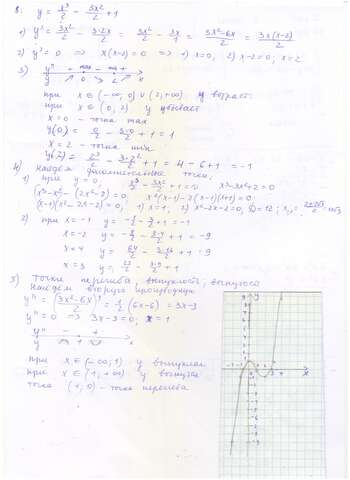 8. y = x³/2 - 3x²/2 + 1
1) y' = 3x²/2 - 3·2x/2 = 3x²/2 - 3x/1 = 3x²-6x/2 = 3x(x-2)/2
2) y' = 0 ⇒ x(x-2)=0 ⇒ 1) x=0; 2) x-2=0; x=2
3) y' + max - min +
y 0 2 x
при x ∈ (-∞; 0) ∪ (2; +∞) y возраст.
при x ∈ (0; 2) y убывает
x = 0 - точка max
y(0) = 0/2 - 3·0/2 + 1 = 1
x = 2 - точка min
y(2) = 2³/2 - 3·2²/2 + 1 = 4 - 6 + 1 = -1
4) Найдем дополнительные точки:
1) при y = 0; x³/2 - 3x²/2 + 1 = 0 x³-3x²+2=0
(x³-x²) - (2x²-2) = 0 x²(x-1) - 2(x-1)(x+1) = 0
(x-1)(x²-2x-2)=0; 1) x=1; 2) x²-2x-2=0; D=12;
2) при x = -1 y = -1/2 - 3/2 + 1 = -1
x = -2 y = -8/2 - 3·4/2 + 1 = -9
x = 4 y = 64/2 - 3·16/2 + 1 = 9
x = 3 y = 27/2 - 3·9/2 + 1
5) Точки перегиба, выпуклость, вогнутость
Найдем вторую производную
y'' = (3x²-6x/2)' = 1/2 (6x-6) = 3x-3
y'' = 0 ⇒ 3x-3=0; x = 1
y'' - +
y 1 x
при x ∈ (-∞; 1) y выпуклая
при x ∈ (1; +∞) y вогнутая
точка (1; 0) - точка перегиба